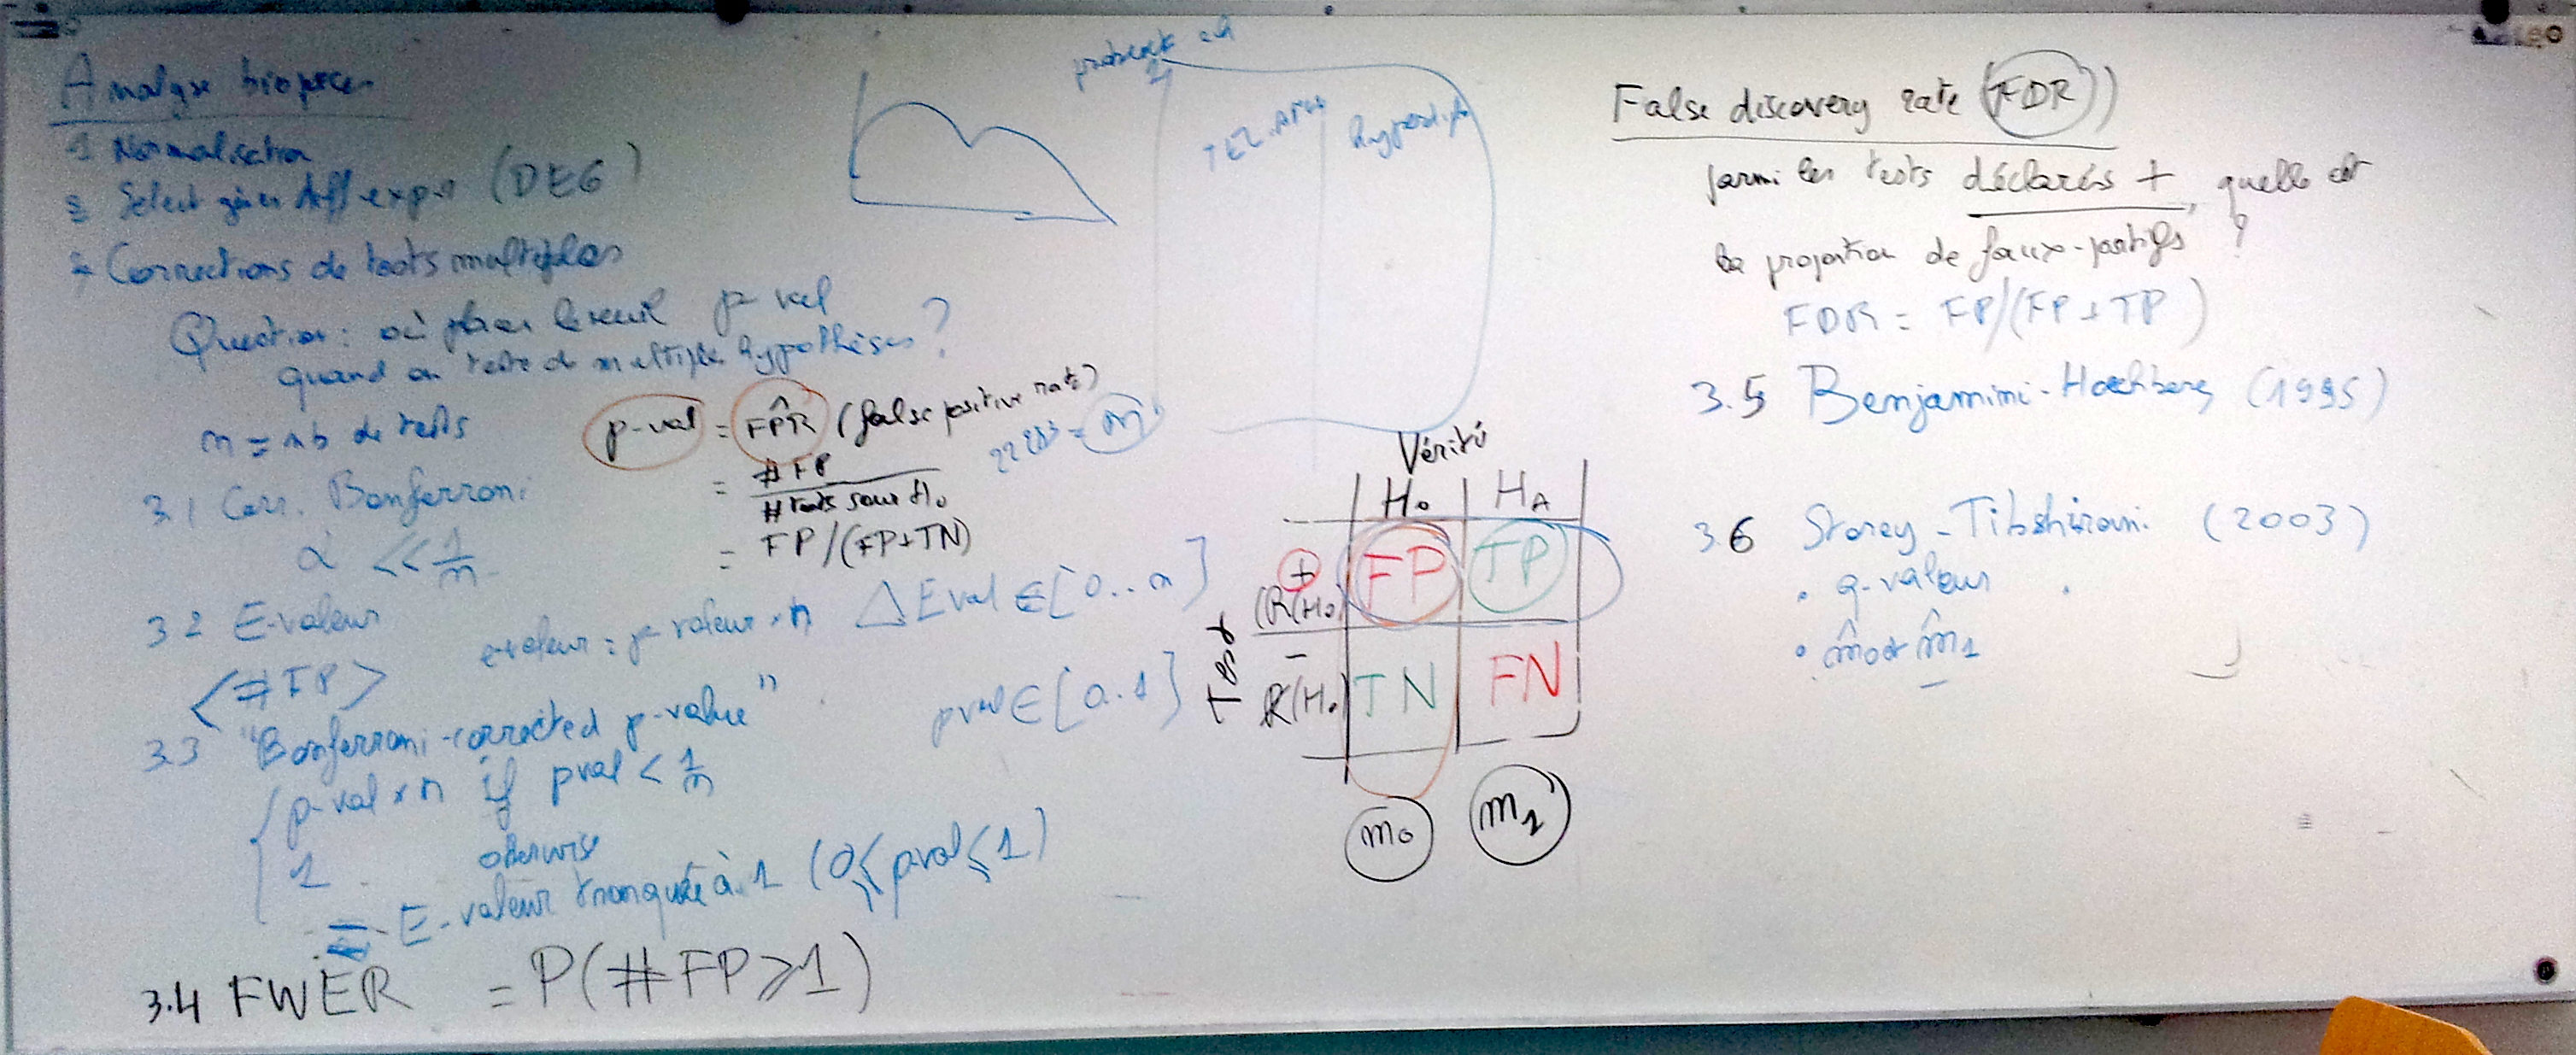 Analyse
1 Normalisation
2 Select gènes diff exp (DEG)
3 Corrections de tests multiples
Question: où placer le seuil p-val
quand on teste de multiples hypothèses ?
m = nb de tests
3.1 Corr. Bonferroni
α << 1/m
3.2 E-valeur
e-valeur = p-valeur × m
△ Eval ∈ [0..m]
<#FP>
pval ∈ [0.1]
3.3 "Bonferroni-corrected p-value"
p-val × m if pval < 1/m
1 otherwise
= E-valeur tronquée à 1 (0 ≤ pval ≤ 1)
3.4 FWER = P(#FP ≥ 1)
p-val = FPR (false positive rate)
= #FP / #tests sous H₀
= FP/(FP+TN)
22283 = m
Vérité
H₀ H_A
Test
+ R(H₀) FP TP
- R(H₀) TN FN
m₀ m₁
TEL-AML hyperdip
False discovery rate (FDR)
parmi les tests déclarés +, quelle est
la proportion de faux-positifs ?
FDR = FP/(FP+TP)
3.5 Benjamini-Hochberg (1995)
3.6 Storey-Tibshirani (2003)
• q-valeur
• m̂₀ et m̂₁